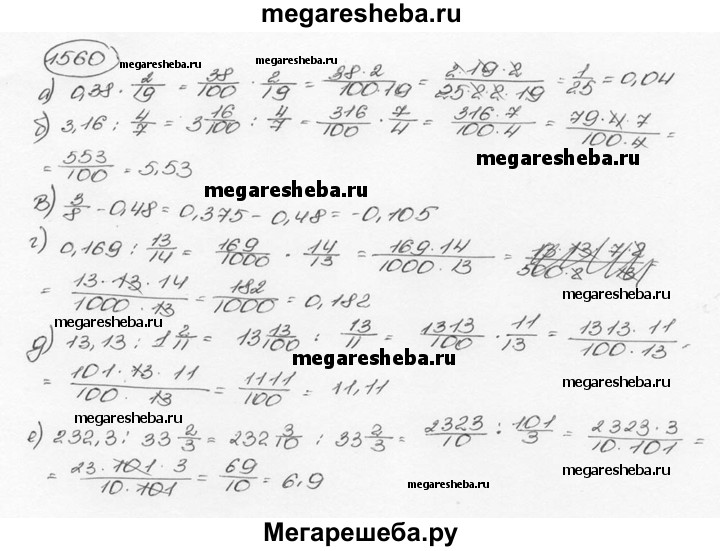 megaresheba.ru
1560
megaresheba.ru megaresheba.ru
а) 0,38 · 2/19 = 38/100 · 2/19 = 38·2/100·19 = 2·19·2/25·2·2·19 = 1/25 = 0,04
б) 3,16 : 4/7 = 3 16/100 : 4/7 = 316/100 · 7/4 = 316·7/100·4 = 79·4·7/100·4 =
megaresheba.ru
= 553/100 = 5,53
megaresheba.ru
в) 3/8 - 0,48 = 0,375 - 0,48 = -0,105
г) 0,169 : 13/14 = 169/1000 · 14/13 = 169·14/1000·13 =
= 13·13·14/1000·13 = 182/1000 = 0,182
megaresheba.ru
megaresheba.ru
д) 13,13 : 1 2/11 = 13 13/100 : 13/11 = 1313/100 · 11/13 = 1313·11/100·13 =
megaresheba.ru
= 101·13·11/100·13 = 1111/100 = 11,11
megaresheba.ru
megaresheba.ru
е) 232,3 : 33 2/3 = 232 3/10 : 33 2/3 = 2323/10 : 101/3 = 2323·3/10·101 =
= 23·101·3/10·101 = 69/10 = 6,9
megaresheba.ru
megaresheba.ru
Мегарешеба.ру